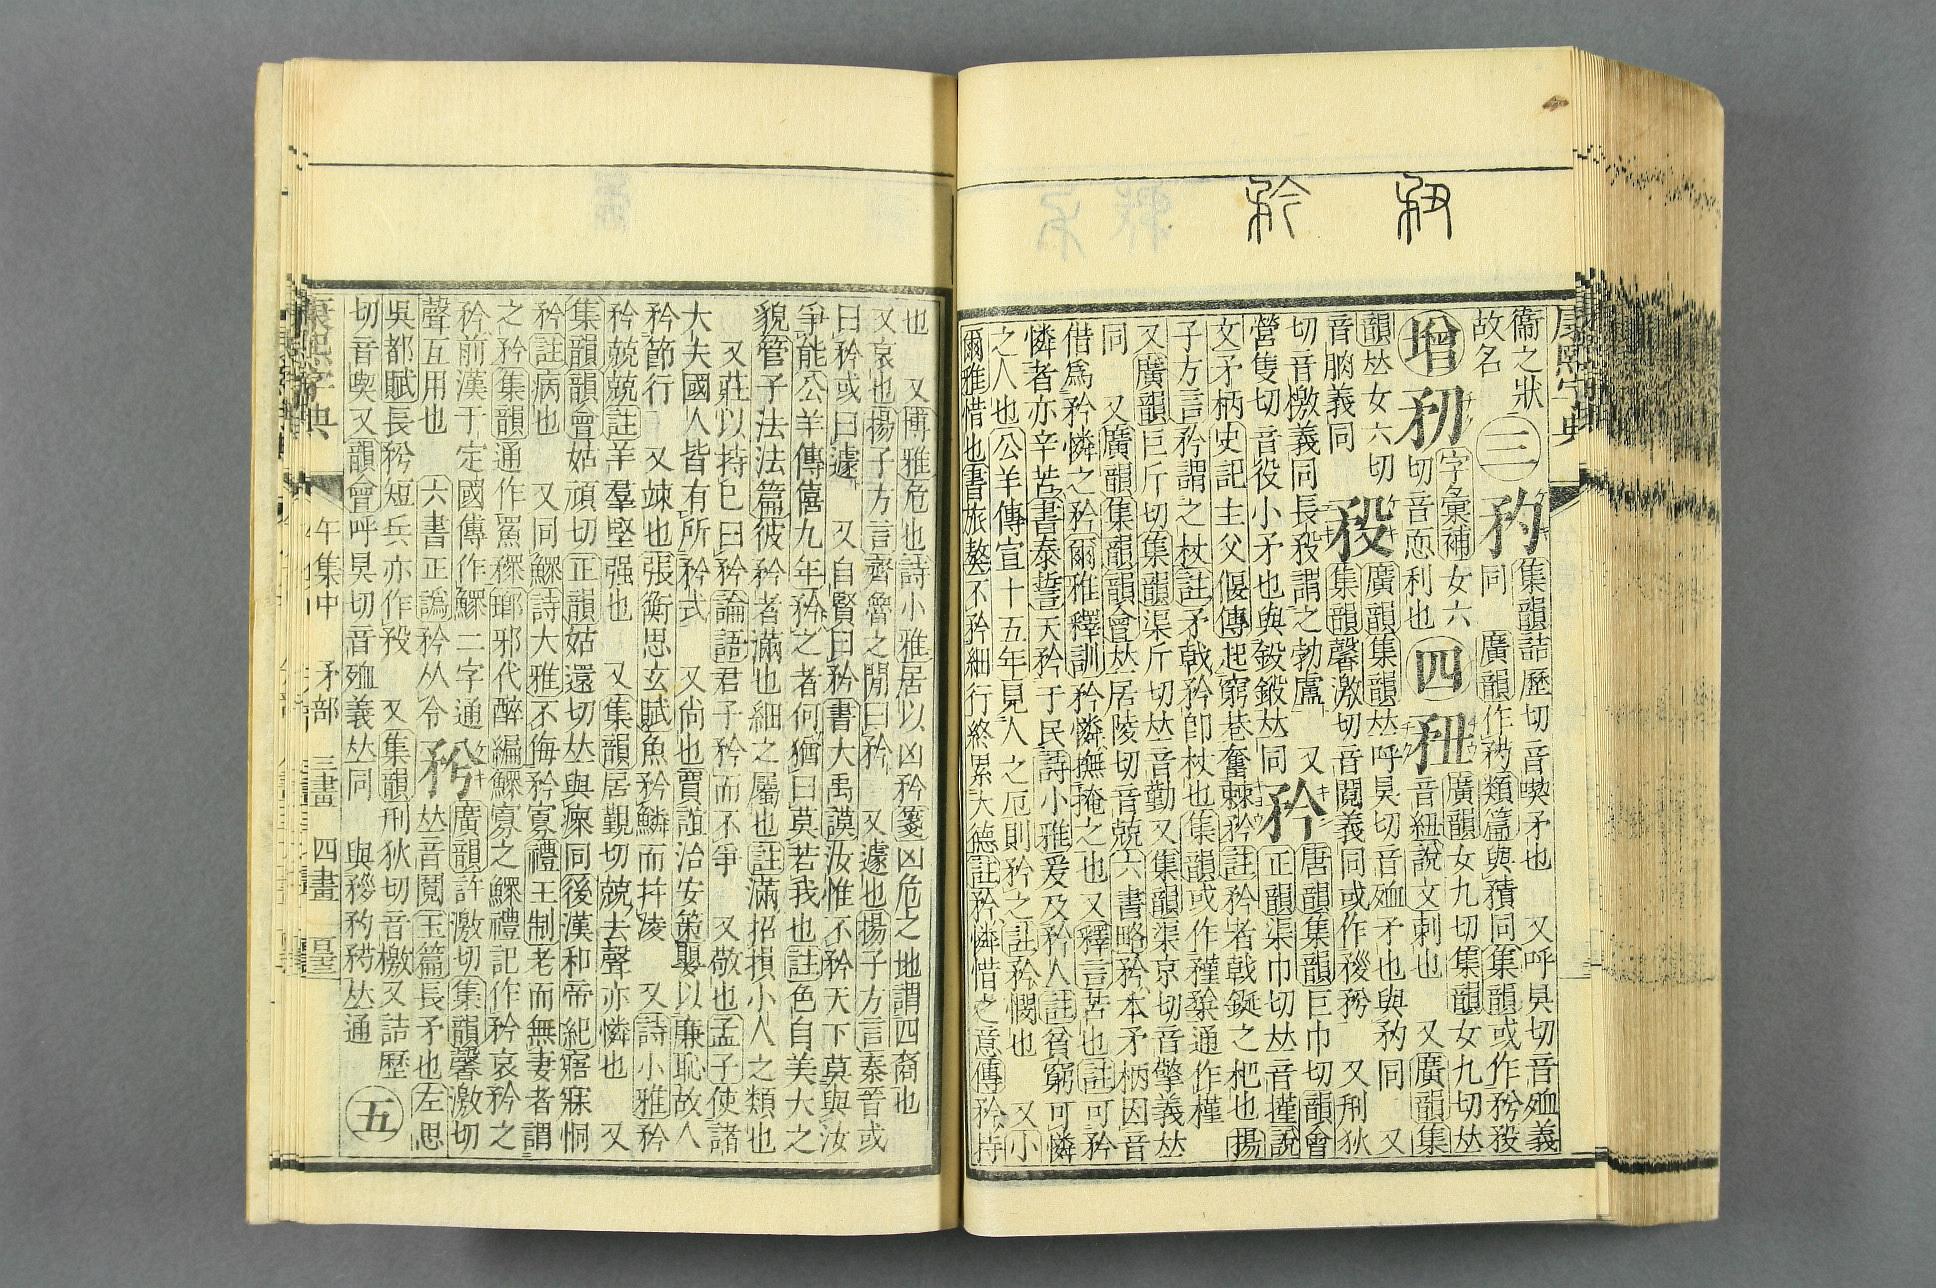 康熙字典
衞之狀
故名
三
集韻詰歷切音喫矛也 又呼狊切音殈義
同 廣韻作 類篇與 同集韻或作矜
增
字彙補女六
切音恧利也
四
廣韻女九切集韻女九切𠀤
音紐說文刺也 又廣韻集
韻𠀤女六切
音朒義同
廣韻集韻𠀤呼狊切音殈矛也與 同 又
集韻馨激切音鬩義同或作 又刑狄
切音檄義同長 謂之勃盧 又
營隻切音役小矛也與 𠀤同
矜
唐韻集韻巨巾切韻會
正韻渠巾切𠀤音墐說
文矛柄史記主父偃傳起窮巷奮棘矜註矜者戟鋋之杷也揚
子方言矜謂之杖註矛戟矜卽杖也集韻或作 通作
又廣韻巨斤切集韻渠斤切𠀤音勤又集韻渠京切音擎義𠀤
同 又廣韻集韻韻會𠀤居陵切音兢六書略矜本矛柄因音
借爲矜憐之矜爾雅釋訓矜憐撫掩之也又釋言苦也註可矜
憐者亦辛苦書泰誓天矜于民詩小雅爰及矜人註貧窮可憐
之人也公羊傳宣十五年見人之厄則矜之註矜憫也 又小
爾雅惜也書旅獒不矜細行終累大德註矜憐惜之意傳矜持
也 又博雅危也詩小雅居以凶矜箋凶危之地謂四裔也
又哀也揚子方言齊魯之閒曰矜 又遽也揚子方言秦晉或
曰矜或曰遽 又自賢曰矜書大禹謨汝惟不矜天下莫與汝
爭能公羊傳僖九年矜之者何猶曰莫若我也註色自美大之
貌管子法法篇彼矜者滿也細之屬也註滿招損小人之類也
又莊以持已曰矜論語君子矜而不爭 又敬也孟子使諸
大夫國人皆有所矜式 又尚也賈誼治安策嬰以廉恥故人
矜節行 又竦也張衡思玄賦魚矜鱗而幷凌 又詩小雅矜
矜兢兢註羊羣堅强也 又集韻居覲切兢去聲亦憐也 又
集韻韻會姑頑切正韻姑還切𠀤與瘝同後漢和帝紀寤寐恫
矜註病也 又同鰥詩大雅不侮矜寡禮王制老而無妻者謂
之矜集韻通作 瑯邪代醉編鰥寡之鰥禮記作矜哀矜之
矜前漢于定國傳作鰥二字通
聲互用也 六書正譌矜从令
廣韻許激切集韻馨激切
𠀤音鬩玉篇長矛也左思
吳都賦長 短兵亦作 又集韻刑狄切音檄又詰歷
切音喫又韻會呼狊切音殈義𠀤同 與 𠀤通
五
康熙字典
午集中 矛部 三畫 四畫